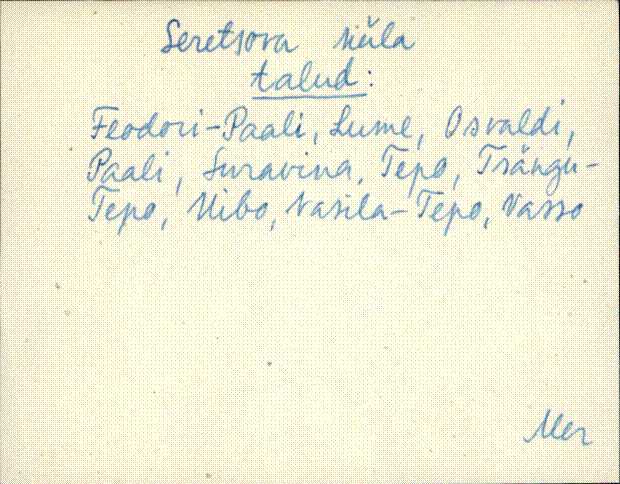 Seretsova küla
talud:
Feodori-Paali, Lume, Osvaldi,
Paali, Suravina, Tepo, Tsängu-
Tepo, Uibo, Vasila-Tepo, Vasso
Mer